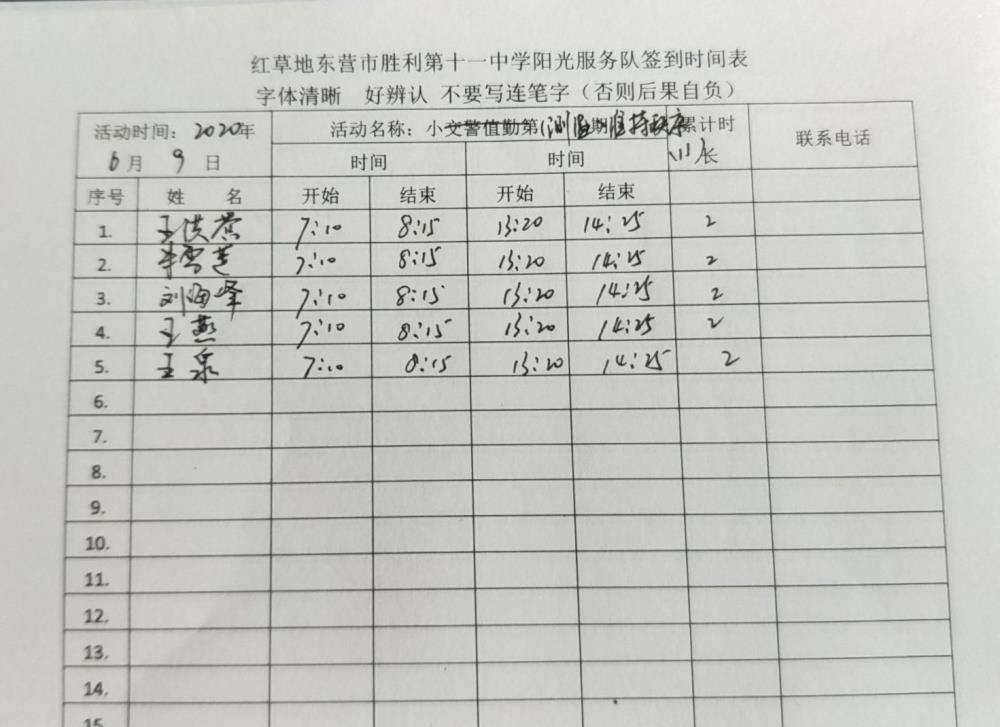 红草地东营市胜利第十一中学阳光服务队签到时间表
字体清晰 好辨认 不要写连笔字（否则后果自负）
活动时间：2020年 活动名称：小交警值勤第 测温 期 维持秩序 累计时 联系电话
6月9日 时间 时间 长
序号 姓 名 开始 结束 开始 结束
1. 王洪燕 7:10 8:15 13:20 14:25 2
2. 雪莲 7:10 8:15 13:20 14:25 2
3. 刘海峰 7:10 8:15 13:20 14:25 2
4. 王燕 7:10 8:15 13:20 14:25 2
5. 王泉 7:10 8:15 13:20 14:25 2
6.
7.
8.
9.
10.
11.
12.
13.
14.
15